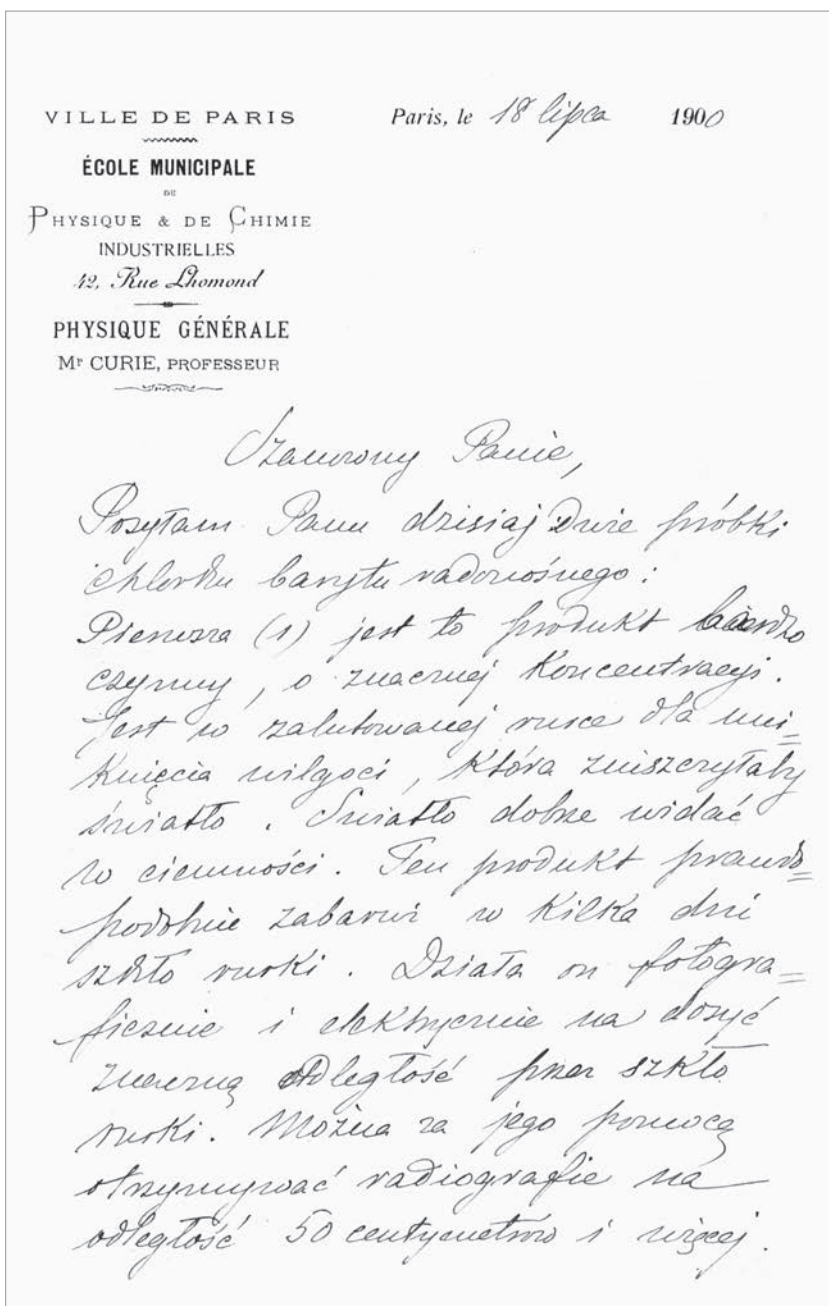 VILLE DE PARIS
Paris, le 18 lipca 1900
ÉCOLE MUNICIPALE
DE
PHYSIQUE & DE CHIMIE
INDUSTRIELLES
42, Rue Lhomond
PHYSIQUE GÉNÉRALE
Mr CURIE, PROFESSEUR
Szanowny Panie,
Posyłam Panu dzisiaj dwie próbki
chlorku barytu radonośnego :
Pierwsza (1) jest to produkt bardzo
czynny, o znacznej koncentracyi.
Jest w zalutowanej rurce dla uni=
knięcia wilgoci, która zniszczyłaby
światło. Światło dobrze widać
w ciemności. Ten produkt prawdo=
podobnie zabarwi w kilka dni
szkło rurki. Działa on fotogra=
ficznie i elektrycznie na dosyć
znaczną odległość przez szkło
rurki. Można za jego pomocą
otrzymywać radiografie na
odległość 50 centymetrów i więcej.